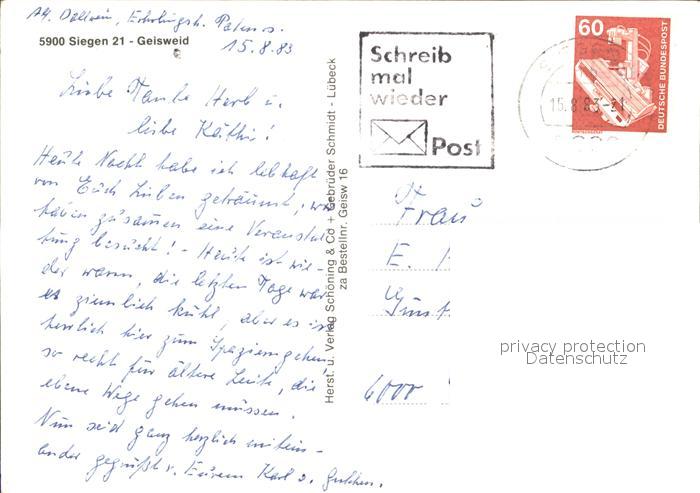 5900 Siegen 21 - Geisweid
15.8.83
Liebe Tante Herb u.
liebe Käthi!
Heute Nacht habe ich lebhaft
von Euch Lieben geträumt, wir
haben zusamen eine Veranstal
tung besucht! - Heute ist wie-
der warm, die letzten Tage war
es ziemlich kühl, aber es ist
herrlich hier zum Spazierengehen
so recht für ältere Leute, die
ebene Wege gehen müssen.
Nun seid ganz herzlich mitein-
ander gegrüßt v. Eurem Karl u.
Herst. u. Verlag Schöning & Co + Gebrüder Schmidt - Lübeck
za Bestellnr. Geisw 16
Schreib
mal
wieder
Post
60
DEUTSCHE BUNDESPOST
15.8.83
Frau
E.
6000
privacy protection
Datenschutz